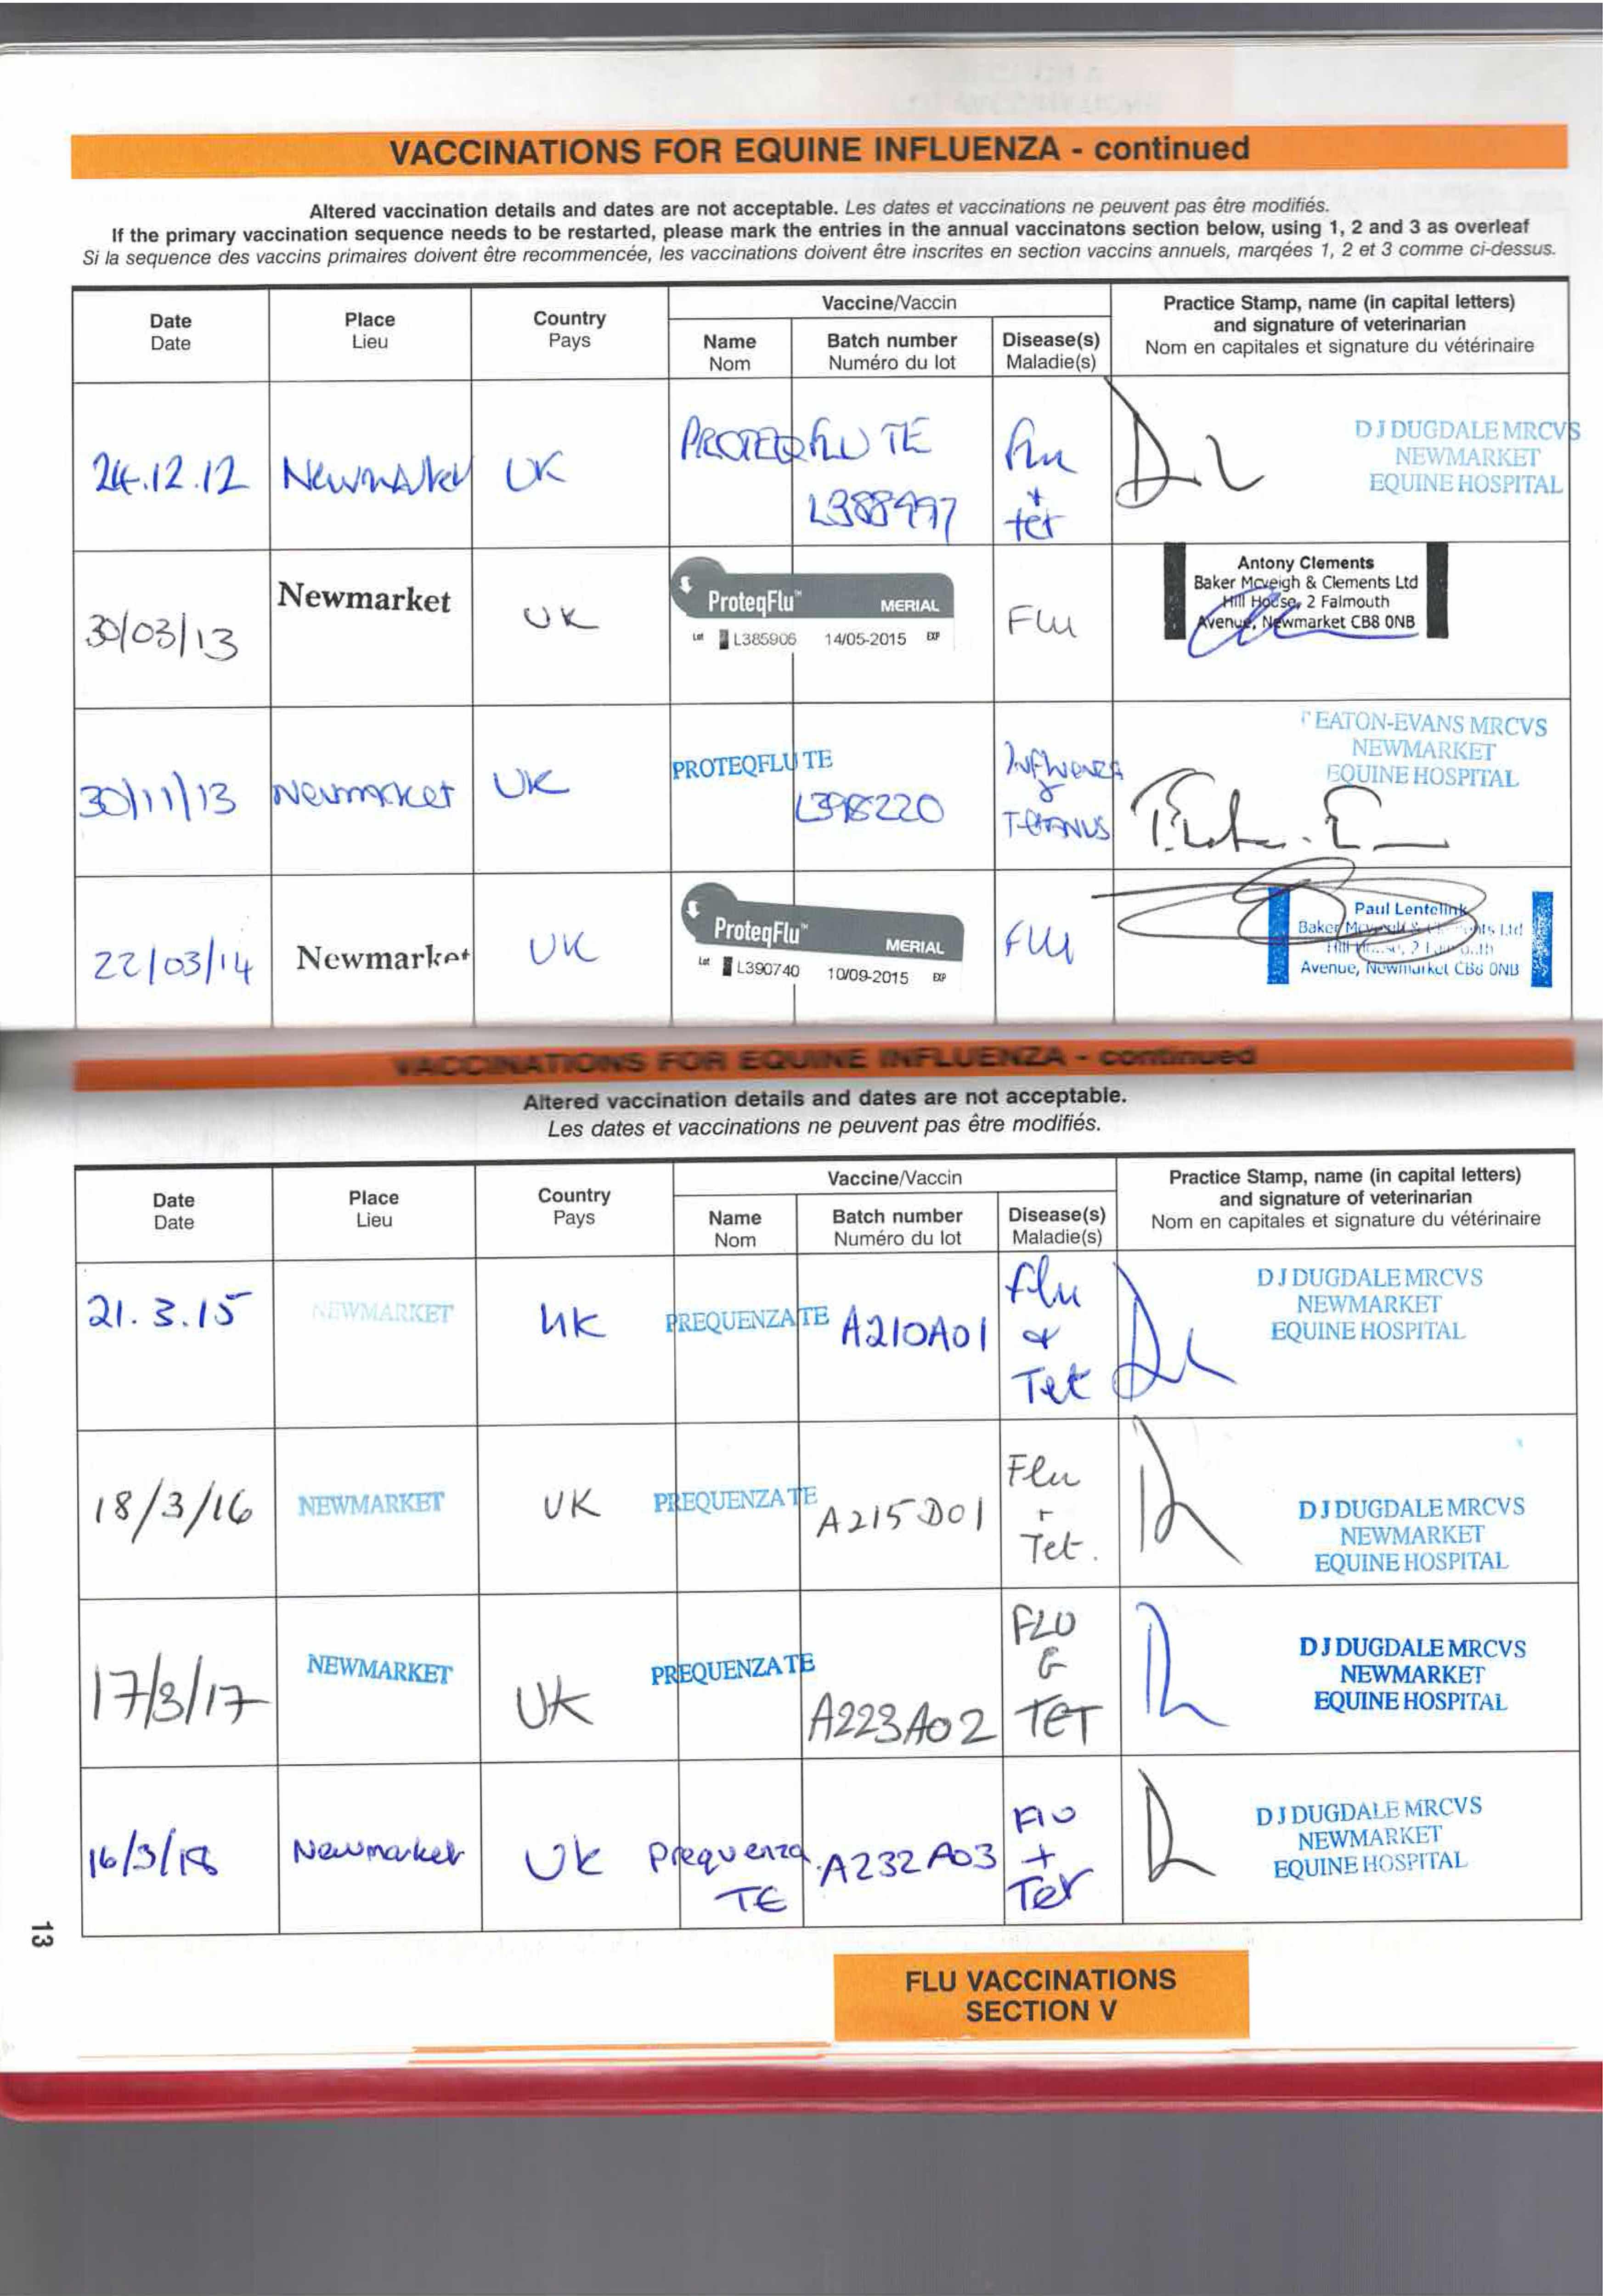 VACCINATIONS FOR EQUINE INFLUENZA - continued
Altered vaccination details and dates are not acceptable. Les dates et vaccinations ne peuvent pas être modifiés.
If the primary vaccination sequence needs to be restarted, please mark the entries in the annual vaccinatons section below, using 1, 2 and 3 as overleaf
Si la sequence des vaccins primaires doivent être recommencée, les vaccinations doivent être inscrites en section vaccins annuels, marqées 1, 2 et 3 comme ci-dessus.
Date
Date
Place
Lieu
Country
Pays
Vaccine/Vaccin
Name
Nom
Batch number
Numéro du lot
Disease(s)
Maladie(s)
Practice Stamp, name (in capital letters)
and signature of veterinarian
Nom en capitales et signature du vétérinaire
24.12.12
Newmarket
UK
PROTEQFLU TE
L388997
flu
+
tet
D J DUGDALE MRCVS
NEWMARKET
EQUINE HOSPITAL
30/03/13
Newmarket
UK
ProteqFlu™
MERIAL
Lot L385906 14/05-2015 EXP
Flu
Antony Clements
Baker Mcveigh & Clements Ltd
Hill House, 2 Falmouth
Avenue, Newmarket CB8 0NB
30/11/13
Newmarket
UK
PROTEQFLU TE
L398220
Influenza
&
Tetanus
EATON-EVANS MRCVS
NEWMARKET
EQUINE HOSPITAL
22/03/14
Newmarket
UK
ProteqFlu™
MERIAL
Lot L390740 10/09-2015 EXP
Flu
Paul Lentelink
Baker Ltd
Avenue, Newmarket CB8 0NB
VACCINATIONS FOR EQUINE INFLUENZA - continued
Altered vaccination details and dates are not acceptable.
Les dates et vaccinations ne peuvent pas être modifiés.
Date
Date
Place
Lieu
Country
Pays
Vaccine/Vaccin
Name
Nom
Batch number
Numéro du lot
Disease(s)
Maladie(s)
Practice Stamp, name (in capital letters)
and signature of veterinarian
Nom en capitales et signature du vétérinaire
21.3.15
NEWMARKET
UK
PREQUENZA TE
A210A01
flu
&
Tet
D J DUGDALE MRCVS
NEWMARKET
EQUINE HOSPITAL
18/3/16
NEWMARKET
UK
PREQUENZA TE
A215D01
Flu
+
Tet.
D J DUGDALE MRCVS
NEWMARKET
EQUINE HOSPITAL
17/3/17
NEWMARKET
UK
PREQUENZA TE
A223A02
FLU
&
TET
D J DUGDALE MRCVS
NEWMARKET
EQUINE HOSPITAL
16/3/18
Newmarket
UK
Prequenza
TE
A232A03
Flu
+
Tet
D J DUGDALE MRCVS
NEWMARKET
EQUINE HOSPITAL
13
FLU VACCINATIONS
SECTION V